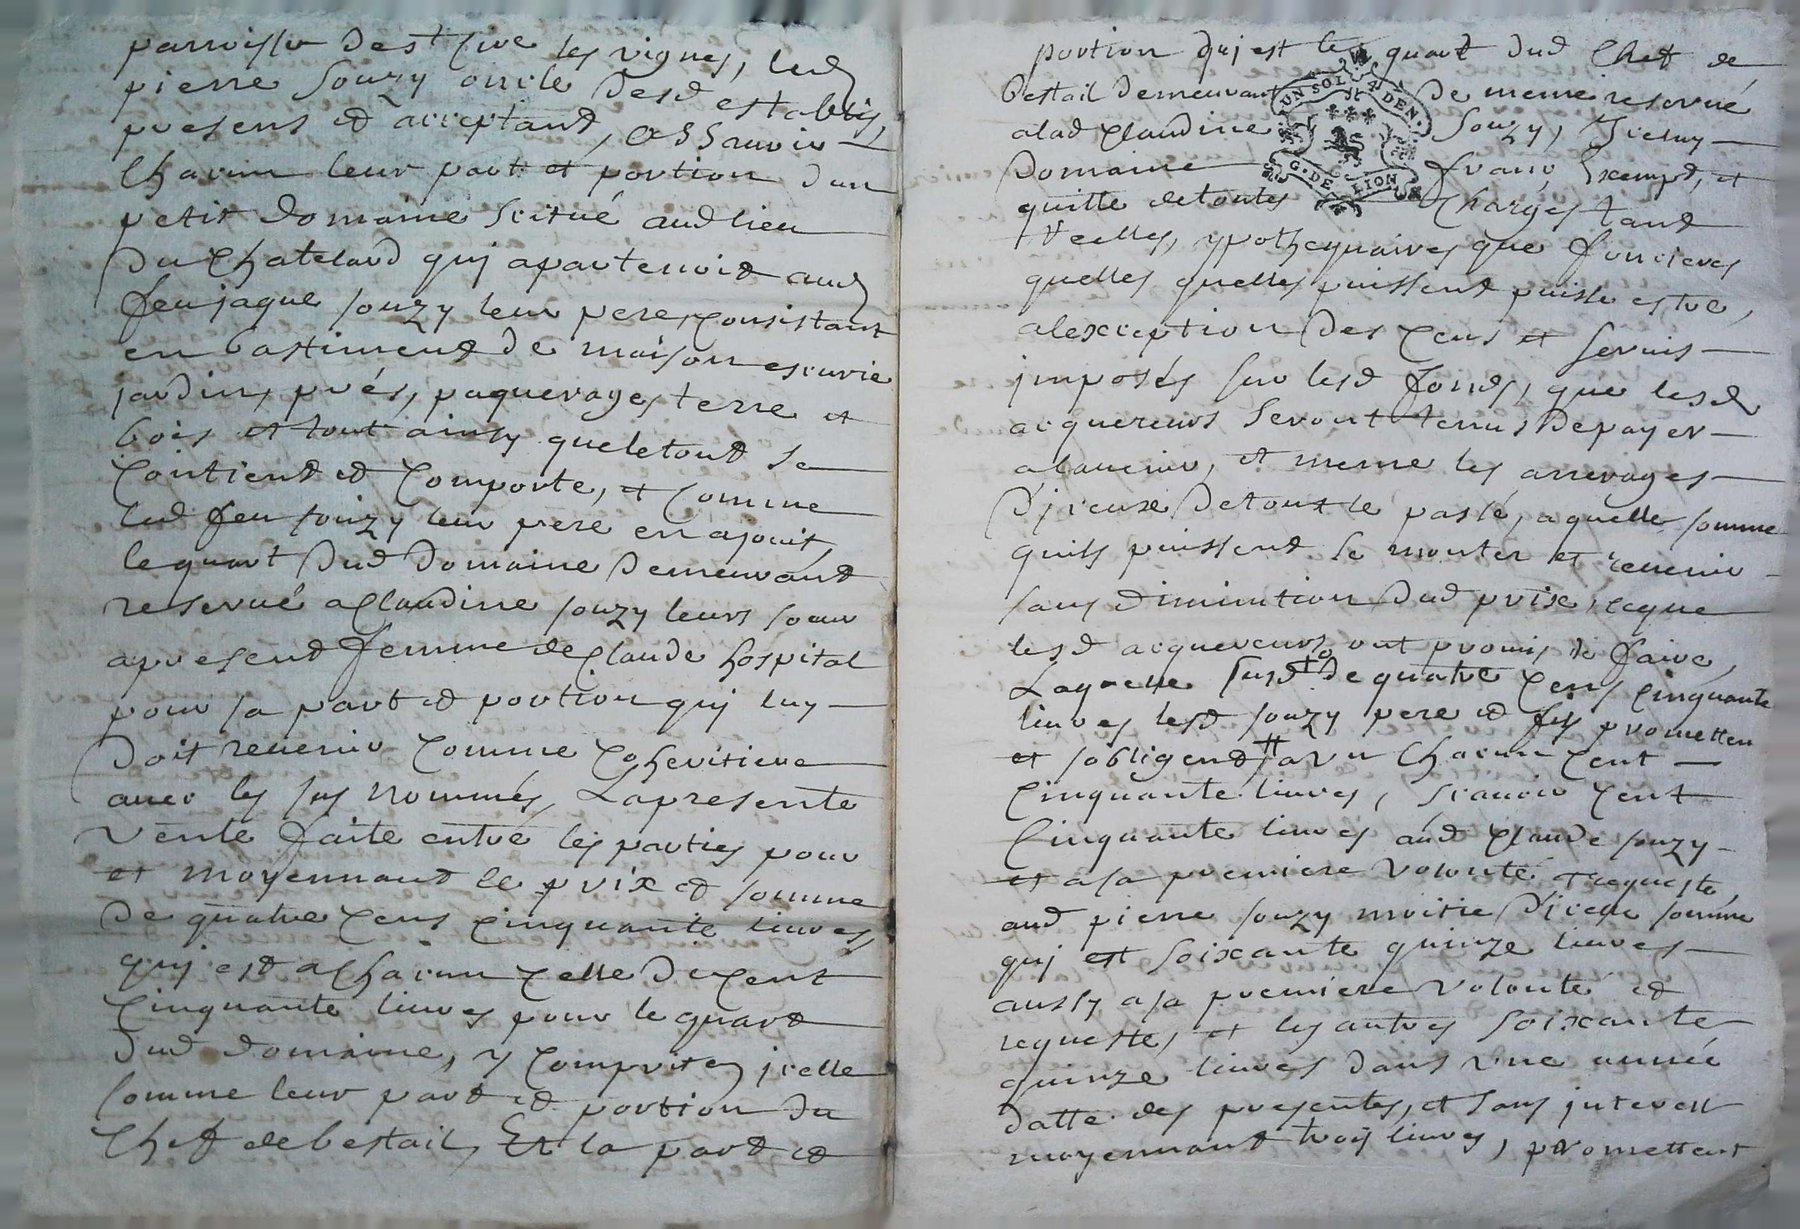 parroisse de st Cire les vignes, led
pierre souzy oncle desd establis,
presens et acceptand, assavoir
Chacun leur part et portion d'un
petit domaine scitué aud lieu
du Chatelard quj apartenoit aud
feu jaque souzy leur pere, Consistant
en bastiment de maison escurie
jardins, prés, paquerages terre et
bois et tout ainsy que le tout se
Contient et Comporte, et Comme
led feu souzy leur pere en ajouit,
le quart dud domaine demeurant
reservé a Claudine souzy leurs soeur
apresent femme de Claude hospital
pour sa part et portion quj luy
doit revenir Comme Coheritiere
avec les sus nommés, La presente
vente faite entre les parties pour
et moyennant le prix et somme
de quatre Cens Cinquante livres,
quj est a Chacun Celle de Cent
Cinquante livres pour le quart
dud domaine, y Comprites jcelle
somme leur part et portion du
Chef de bestail, Et la part et
portion quj est le quart dud Chef de
bestail demeurant de meme reservé
a lad Claudine souzy, Jceluy
Domaine franc, Exempt, et
quitte de toutes Charges tant
reelles, ypothequaires que foncieres
quelles quelles puissent puisse estre,
a lexception des Cens et servis
jmposés sur lesd fonds, que lesd
acquereurs seront tenus de payer
a lavenir, et meme les arrerages
d'jceux de tout le passé, a quelle somme
quils puissent se monter et revenir
sans diminution dud prix, ce que
lesd acquereurs ont promis de faire,
Laquelle susd de quatre Cens Cinquante
livres lesd souzy pere et fils prometten
et sobligend a un Chacun Cent
Cinquante livres, scavoir Cent
Cinquante livres aud Claude souzy
et a sa premiere volonté et requeste,
aud pierre souzy moitie d'jcelle somme
quj est soixante quinze livres
aussy a sa premiere volonté et
requeste, et les autres soixante
quinze livres dans une année
datte des presentes, et sans jnterest
moyennant trois livres, promettant
UN SOL 4 DEN.
G. DE LION